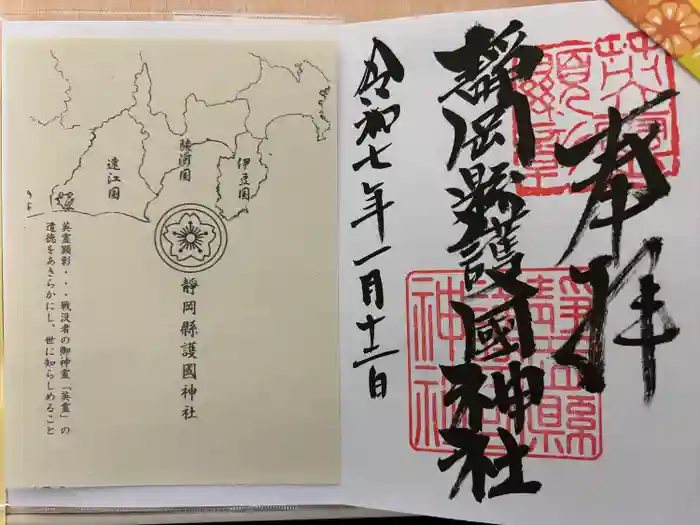 奉拝
靜岡縣護國神社
令和七年一月十二日
英霊顕彰
靜岡縣護國神社
伊豆国
駿河国
遠江国
靜岡縣護國神社
英霊顕彰・・・戦没者の御神霊「英霊」の
道徳をあきらかにし、世に知らしめること